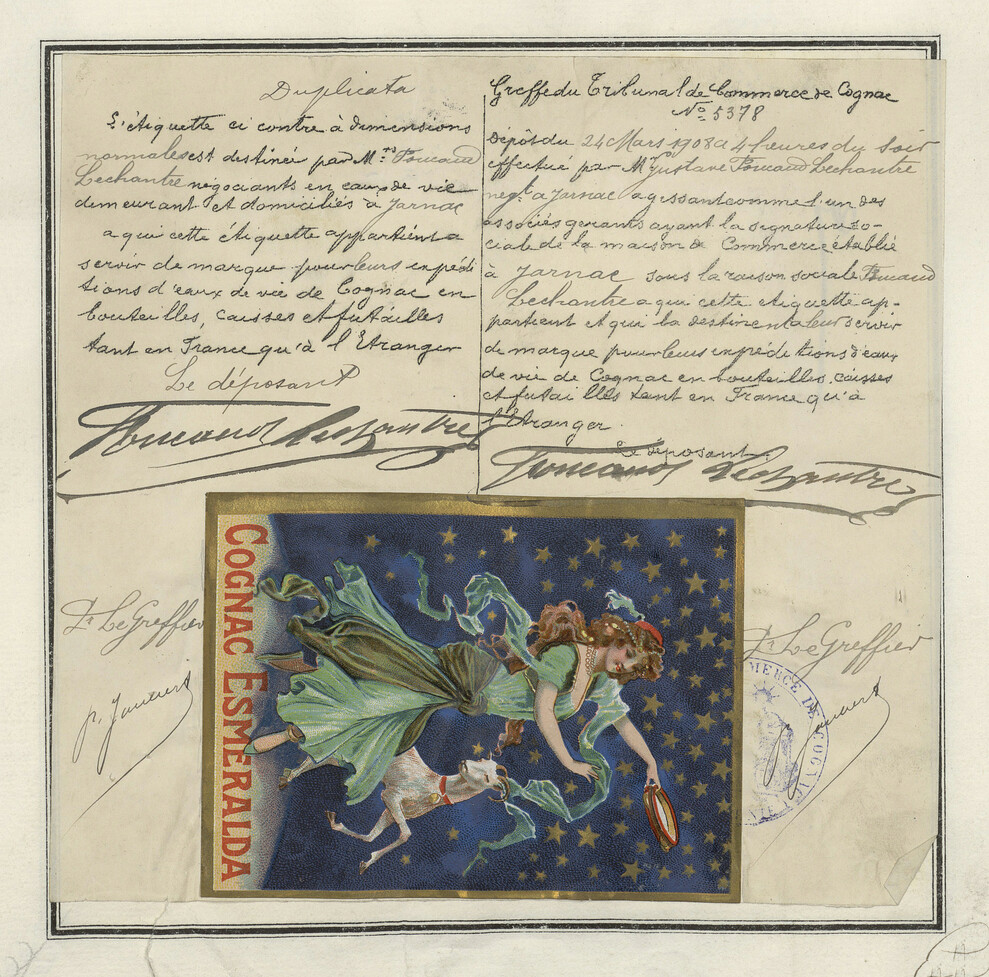 Duplicata
L'étiquette ci contre à dimensions
normales est destinée par M.rs Foucaud
Lechantre négociants en eaux de vie
demeurant et domiciliés à Jarnac
a qui cette étiquette appartient a
servir de marque pour leurs expédi
tions d'eaux de vie de Cognac en
bouteilles, caisses et futailles
tant en France qu'à l'Etranger
Le déposant
Foucaud Lechantre
Greffe du Tribunal de Commerce de Cognac
No 5378
Dépôt du 24 Mars 1908 a 4 heures du soir
effectué par M Gustave Foucaud Lechantre
negt a Jarnac agissant comme l'un des
associés gerants ayant la signature so-
ciale de la maison de Commerce établie
à Jarnac sous la raison sociale Foucaud
Lechantre a qui cette étiquette ap-
partient et qui la destinent a leur servir
de marque pour leurs expéditions d'eaux
de vie de Cognac en bouteilles, caisses
et futailles tant en France qu'à
l'Etranger.
Le déposant
Foucaud Lechantre
COGNAC ESMERALDA
Le Greffier
Le Greffier
MERCE DE COGNAC